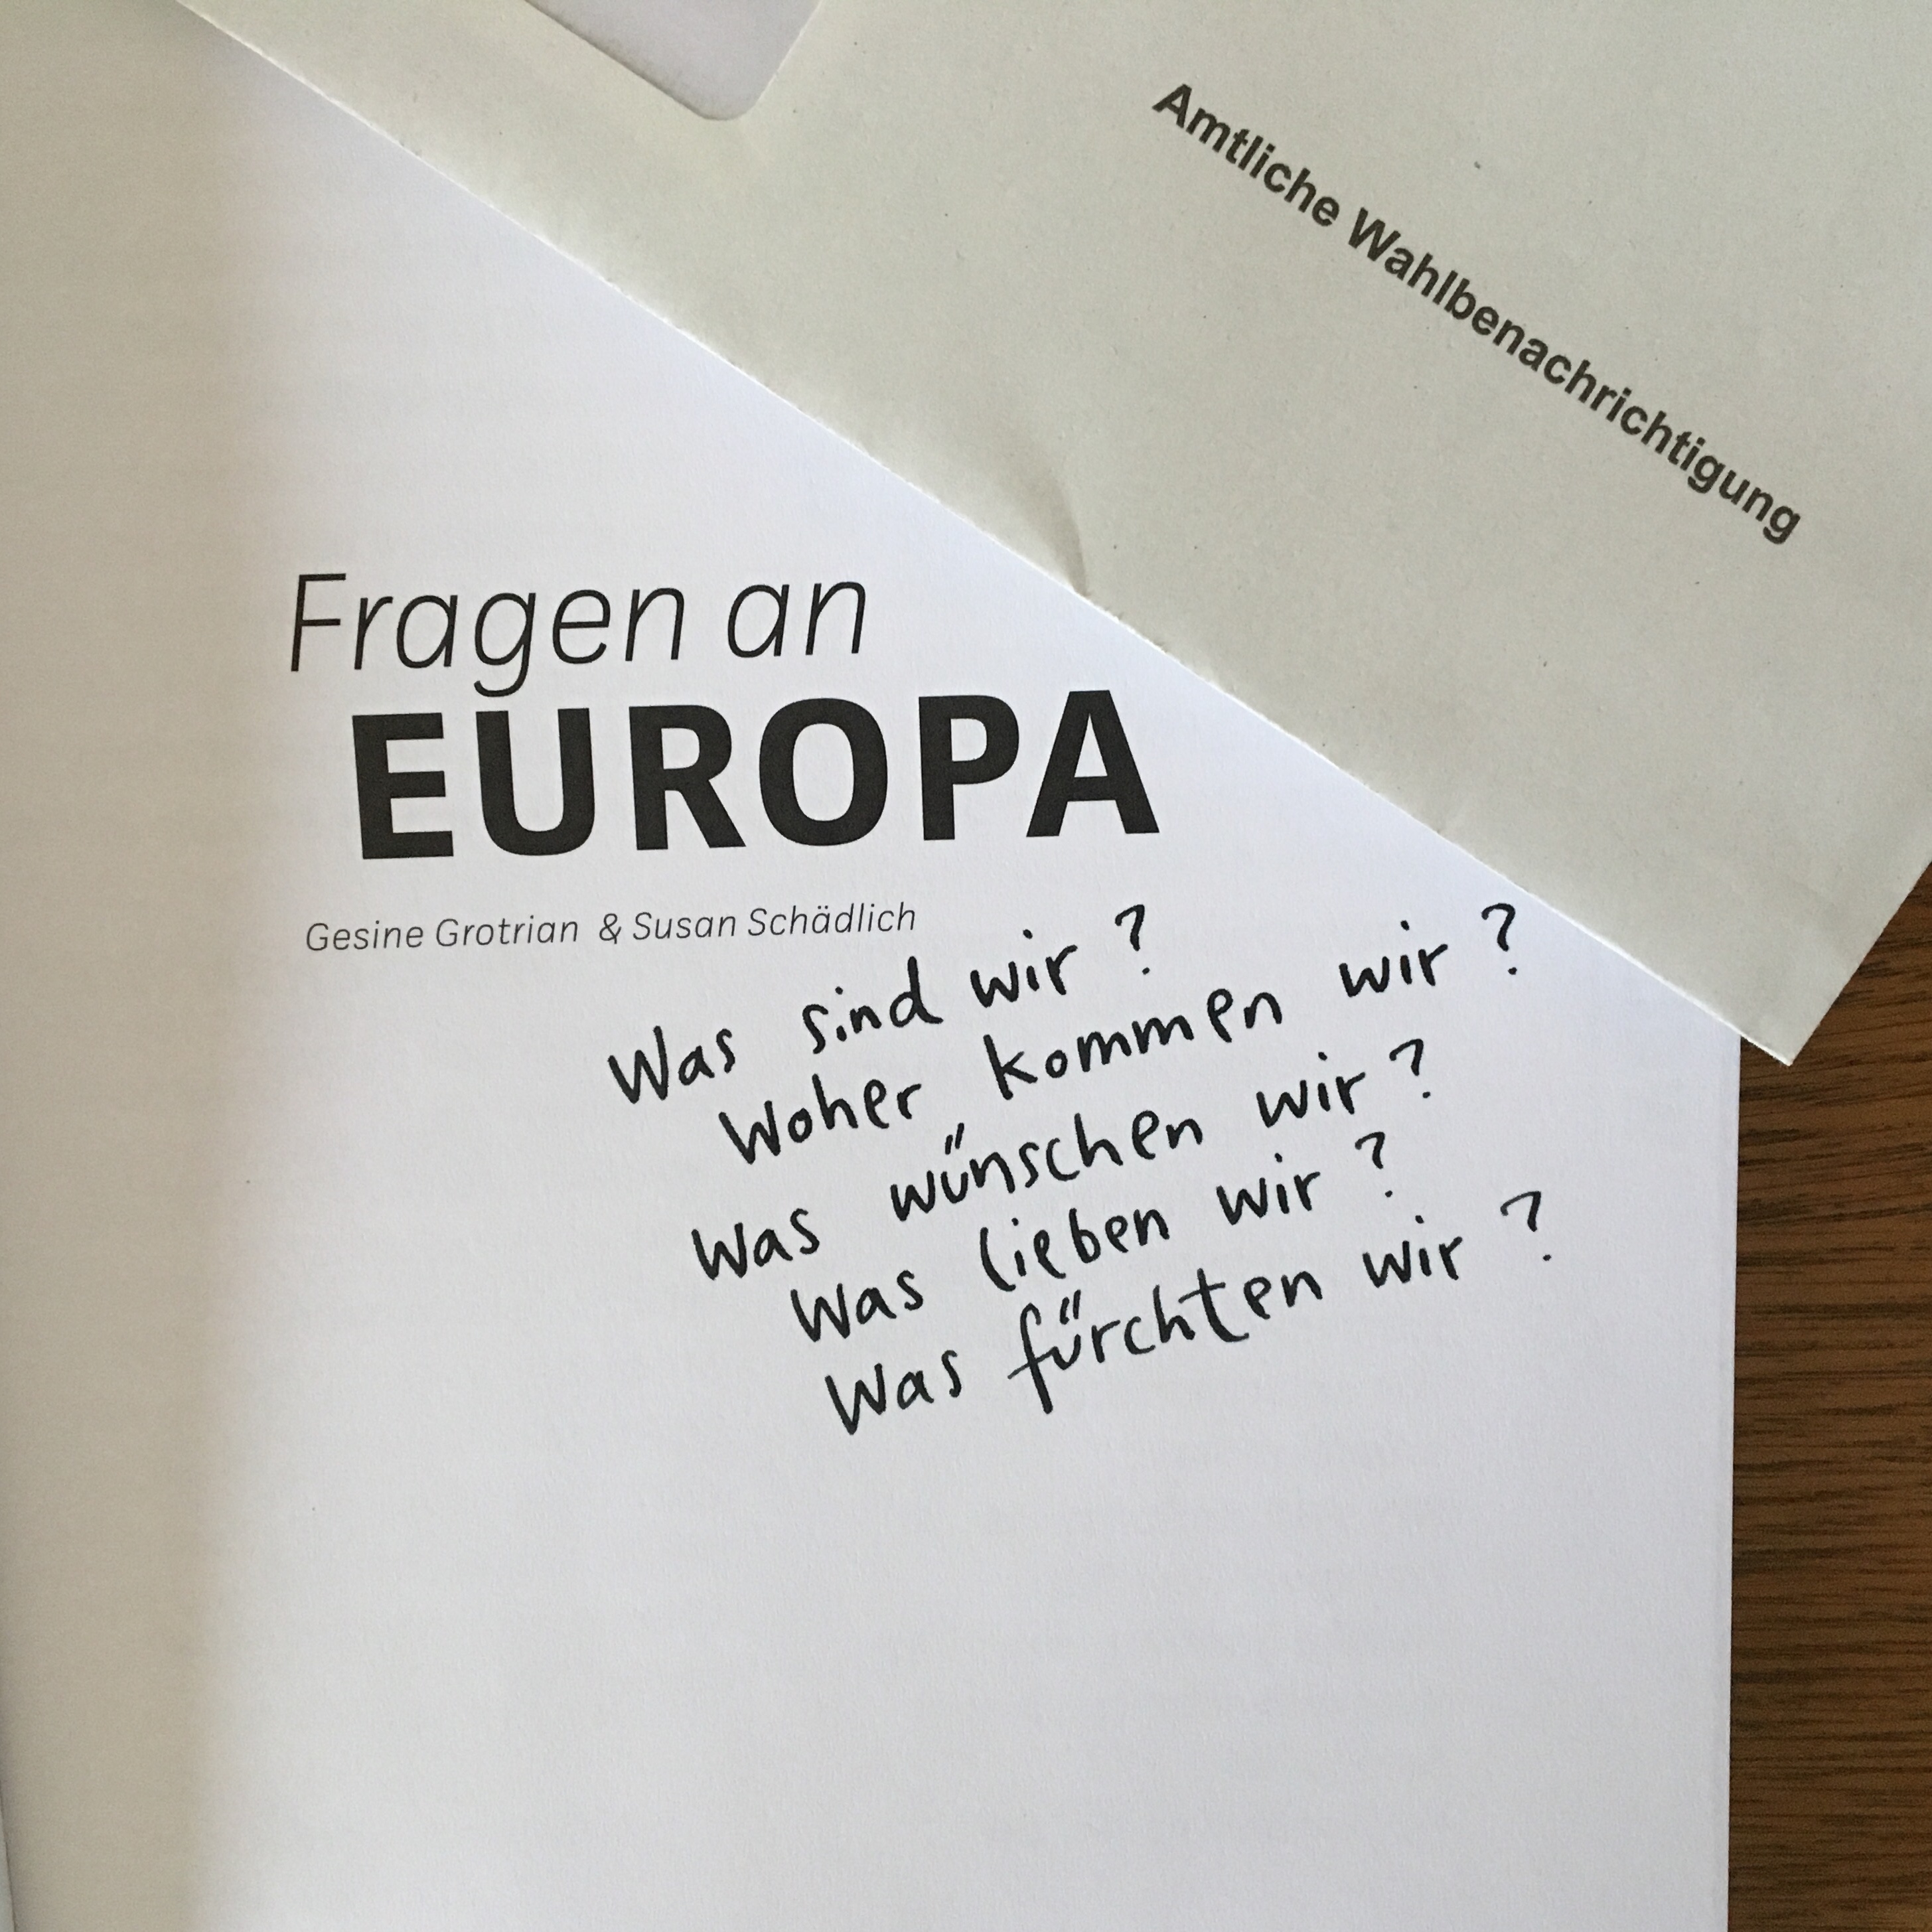 Amtliche Wahlbenachrichtigung
Fragen an
EUROPA
Gesine Grotrian & Susan Schädlich
Was sind wir?
Woher kommen wir?
Was wünschen wir?
Was lieben wir?
Was fürchten wir?